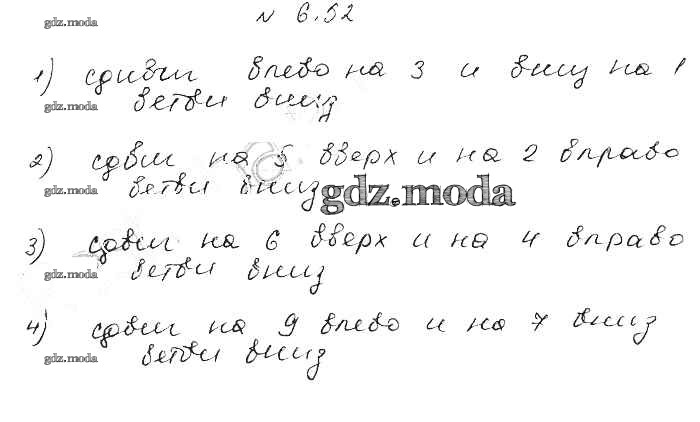 N 6.52
gdz.moda
1) сдивиг влево на 3 и вниз на 1
gdz.moda ветви вниз
2) сдвиг на 5 вверх и на 2 вправо
gdz.moda ветви вниз
gdz.moda
3) сдвиг на 6 вверх и на 4 вправо
gdz.moda ветви вниз
4) сдвиг на 9 влево и на 7 вниз
gdz.moda ветви вниз